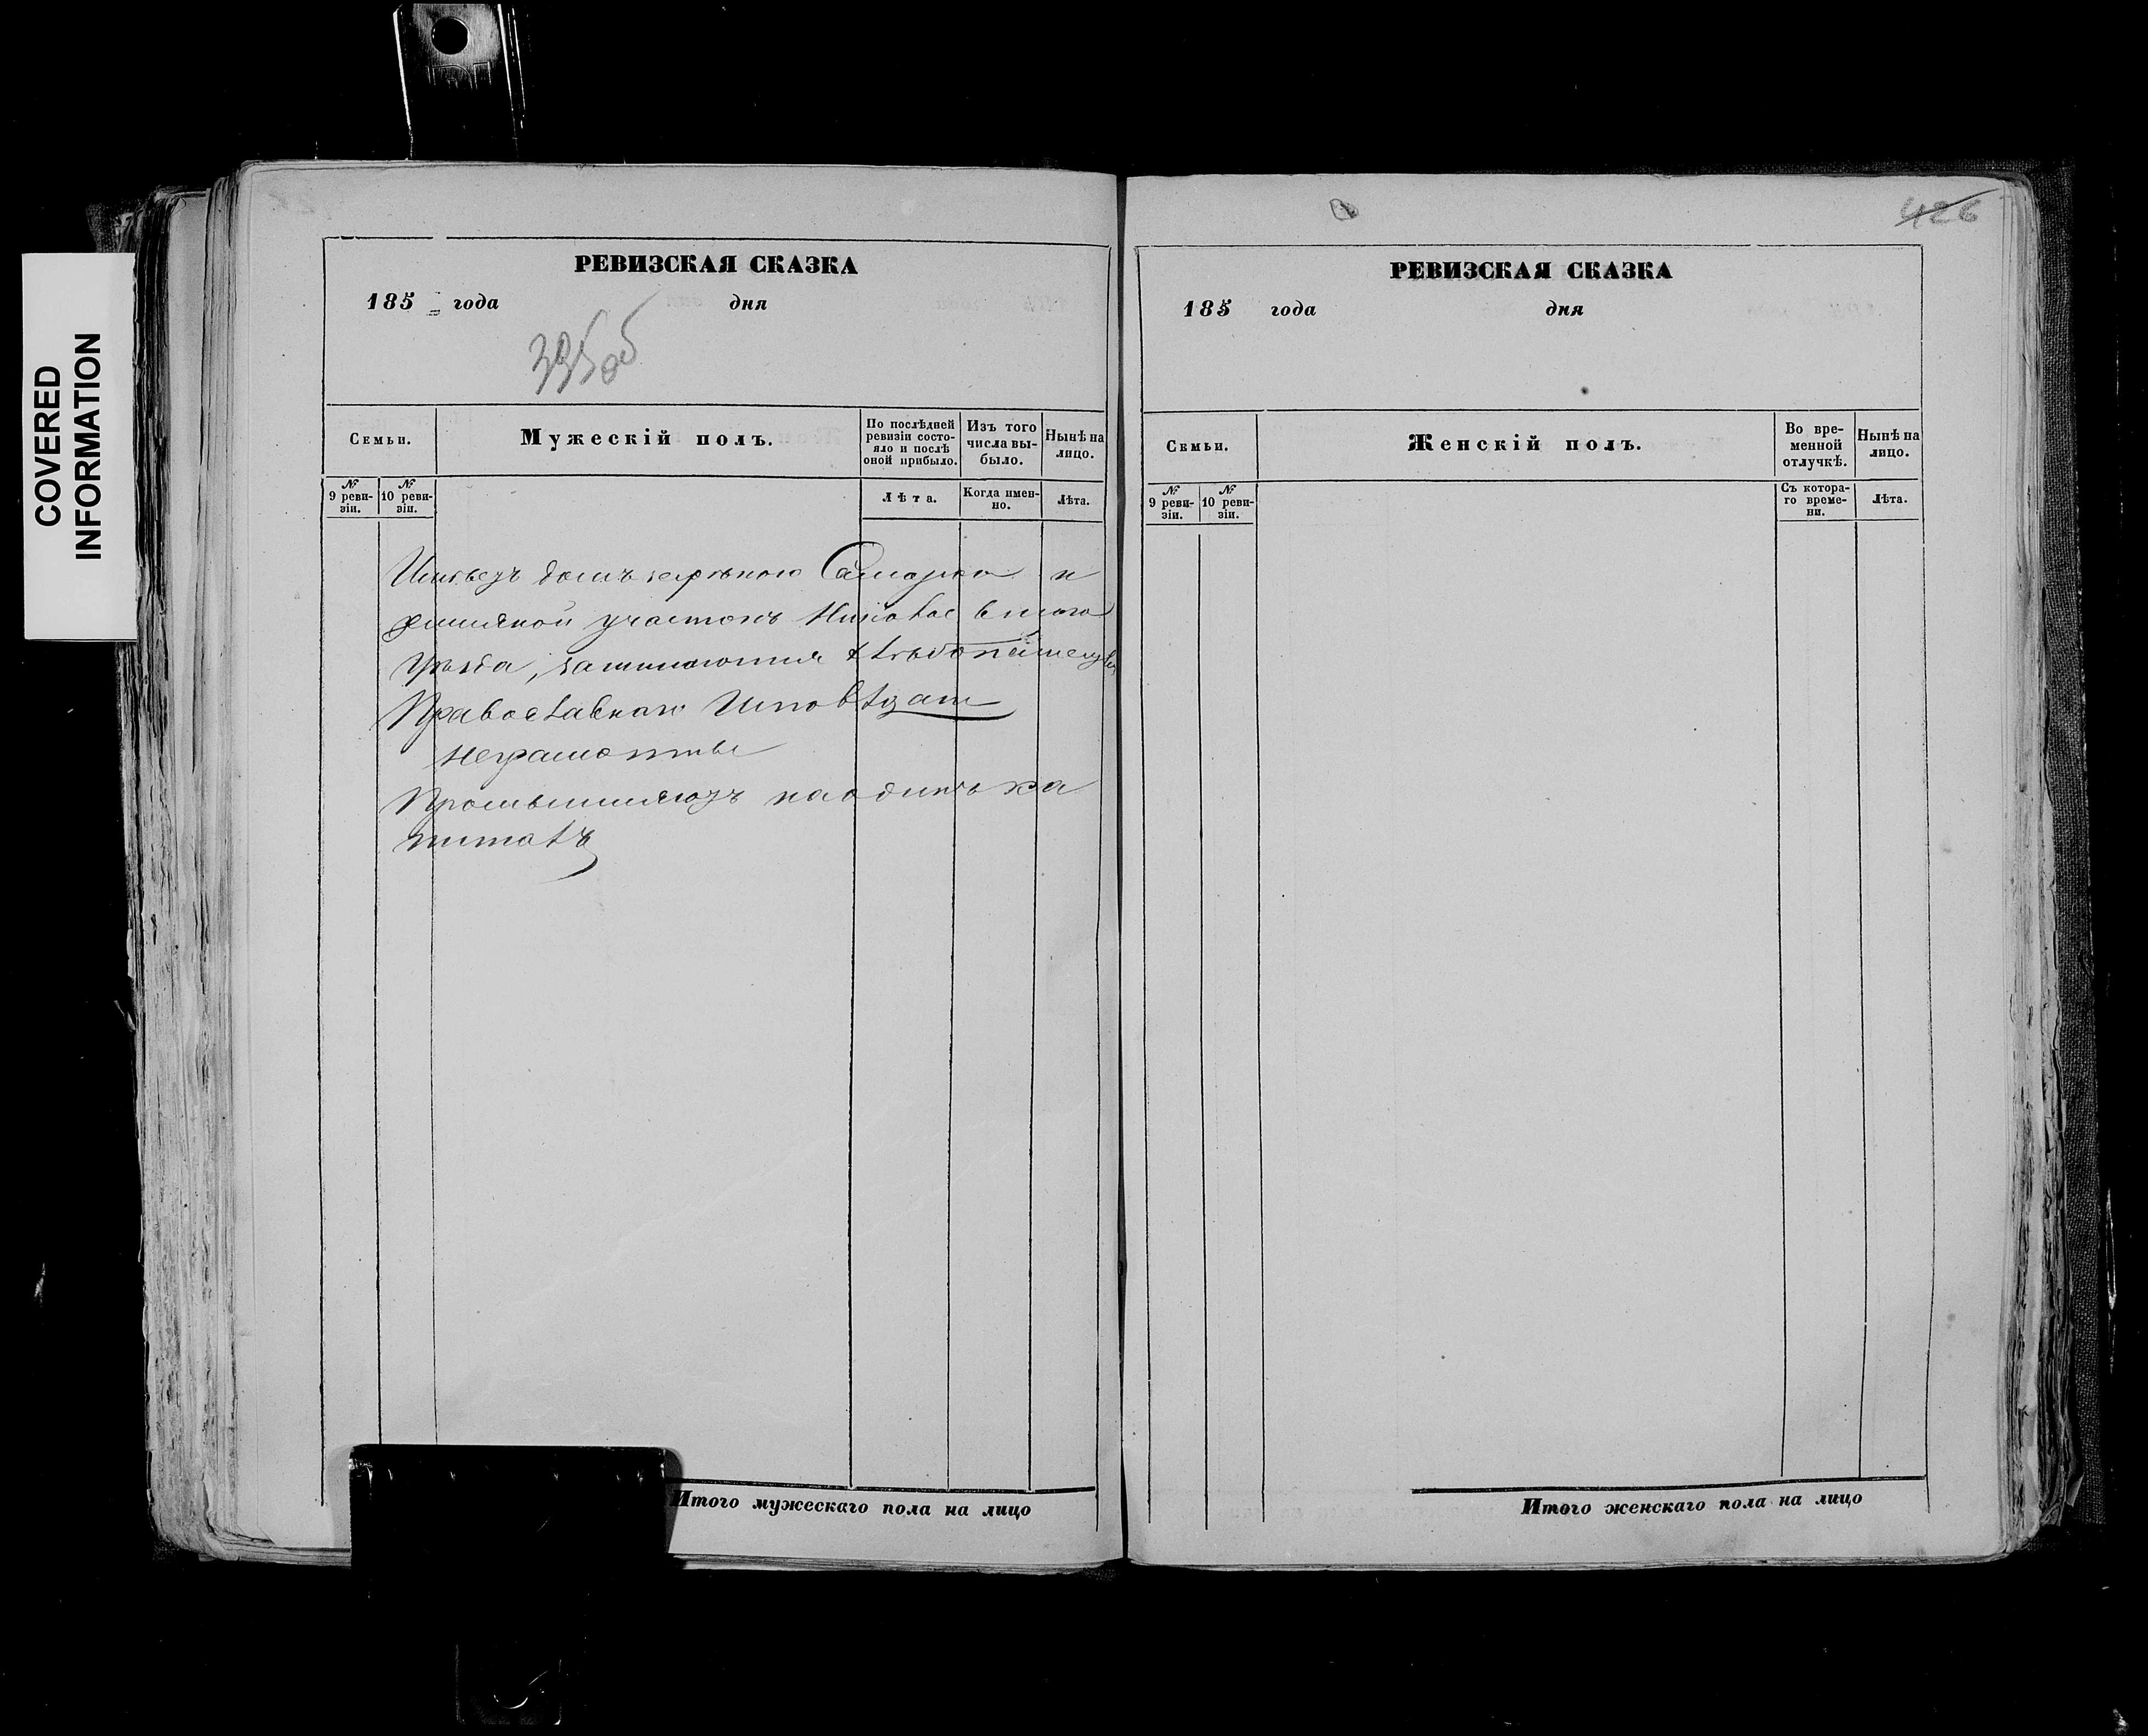 COVERED
INFORMATION
РЕВИЗСКАЯ СКАЗКА
185 года дня
Семьи.
Мужескій полъ.
По послѣдней ревизіи состояло и послѣ оной прибыло.
Изъ того числа выбыло.
Нынѣ на лицо.
№ 9 ревизіи.
№ 10 ревизіи.
Лѣта.
Когда именно.
Лѣта.
домъ Самары и
участокъ
уѣзда,
Православнаго
неграмотны
на одинъ ка
питалъ
Итого мужескаго пола на лицо
426
РЕВИЗСКАЯ СКАЗКА
185 года дня
Семьи.
Женскій полъ.
Во временной отлучкѣ.
Нынѣ на лицо.
№ 9 ревизіи.
№ 10 ревизіи.
Съ котораго времени.
Лѣта.
Итого женскаго пола на лицо